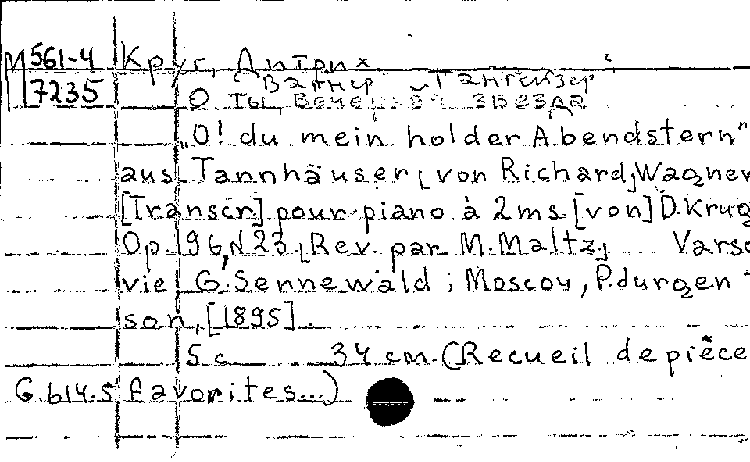 М 561-4 Круг, Дитрих
7235 Вагнер Тангейзер
О ты, Вечерняя звезда
„O! du mein holder Abendstern"
aus Tannhäuser, von Richard Wagner
[Transcr] pour piano à 2 ms [von] D. Krug
Op. 196, N 23, Rev. par M. Maltz, Varso
vie G. Sennewald ; Moscou, P. Jurgen-
son, [1895].
5 с. 34 cm. (Recueil de pièce
G. 614.5 favorites...)